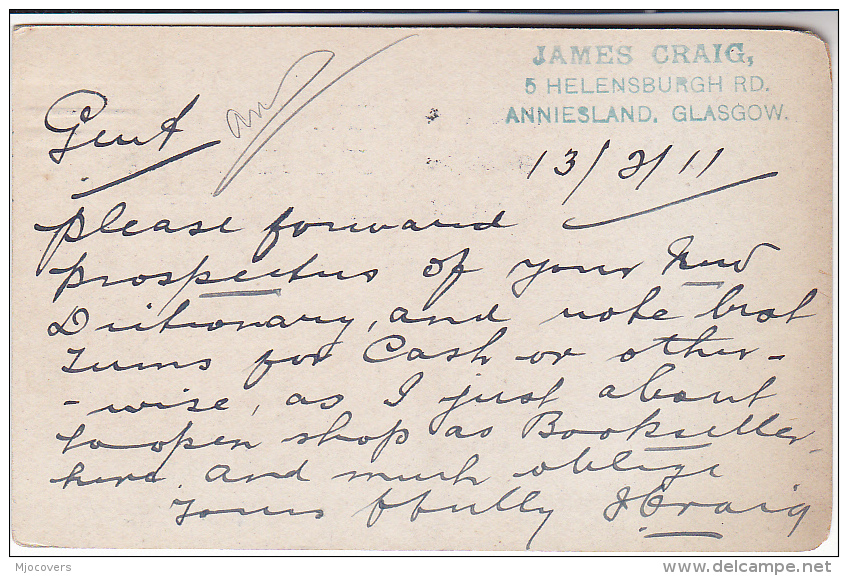 JAMES CRAIG,
5 HELENSBURGH RD.
ANNIESLAND, GLASGOW.
13/3/11
Gent
please forward
prospectus of your New
Dictionary, and note best
Terms for Cash or other-
-wise, as I just about
to open shop as Bookseller
here. and much oblige
Yours ffully J Craig
Mjocovers
delcampe.net